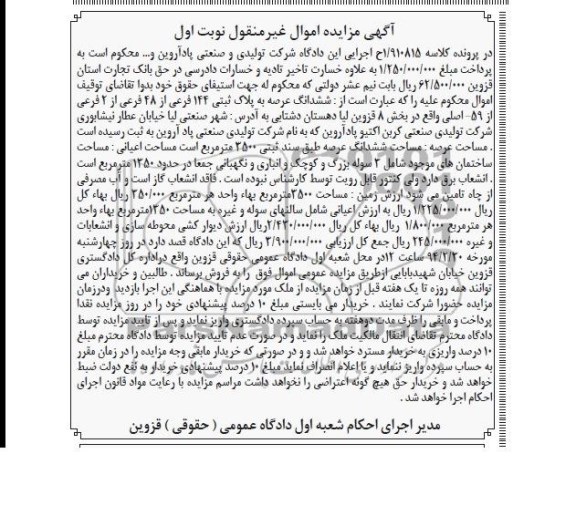 آگهی مزایده اموال غیرمنقول نوبت اول
در پرونده کلاسه ۱/۹۱۰۸۱۵ح اجرایی این دادگاه شرکت تولیدی و صنعتی پادآروین و... محکوم است به
پرداخت مبلغ ۱/۲۵۰/۰۰۰/۰۰۰ به علاوه خسارت تاخیر تادیه و خسارات دادرسی در حق بانک تجارت استان
قزوین ۶۲/۵۰۰/۰۰۰ ریال بابت نیم عشر دولتی که محکوم له جهت استیفای حقوق خود بدوا تقاضای توقیف
اموال محکوم علیه را که عبارت است از : ششدانگ عرصه به پلاک ثبتی ۱۴۴ فرعی از ۴۸ فرعی از ۲ فرعی
از ۵۹- اصلی واقع در بخش ۸ قزوین لیا دهستان دشتابی به آدرس : شهر صنعتی لیا خیابان عطار نیشابوری
شرکت تولیدی صنعتی کربن اکتیو پادآروین که به نام شرکت تولیدی صنعتی پاد آروین به ثبت رسیده است
. مساحت عرصه : مساحت ششدانگ عرصه طبق سند ثبتی ۳۵۰۰ مترمربع است مساحت اعیانی : مساحت
ساختمان های موجود شامل ۲ سوله بزرگ و کوچک و انباری و نگهبانی جمعا در حدود ۱۳۵۰ مترمربع است
. انشعاب برق دارد ولی کنتور قابل رویت توسط کارشناس نبوده است . فاقد انشعاب گاز است و آب مصرفی
از چاه تامین می شود ارزش زمین : مساحت ۳۵۰۰مترمربع بهاء واحد هر مترمربع ۳۵۰/۰۰۰ ریال بهاء کل
ریال ۱/۲۲۵/۰۰۰/۰۰۰ ریال به ارزش اعیانی شامل سالنهای سوله و غیره به مساحت ۱۳۵۰مترمربع بهاء واحد
هر مترمربع ۱/۸۰۰/۰۰۰ ریال بهاء کل ریال ۲/۴۳۰/۰۰۰/۰۰۰ریال ارزش دیوار کشی محوطه سازی و انشعابات
و غیره ۲۴۵/۰۰۰/۰۰۰ ریال جمع کل ارزیابی ۳/۹۰۰/۰۰۰/۰۰۰ ریال که این دادگاه قصد دارد در روز چهارشنبه
مورخه ۹۴/۲/۳۰ ساعت ۱۲در محل شعبه اول دادگاه عمومی حقوقی قزوین واقع دراداره کل دادگستری
قزوین خیابان شهیدبابایی ازطریق مزایده عمومی اموال فوق را به فروش برساند . طالبین و خریداران می
توانند همه روزه تا یک هفته قبل از زمان مزایده از ملک مورد مزایده با هماهنگی این اجرا بازدید ودرزمان
مزایده حضورا شرکت نمایند . خریدار می بایستی مبلغ ۱۰ درصد پیشنهادی خود را در روز مزایده نقدا
پرداخت و مابقی را ظرف مدت دوهفته به حساب سپرده دادگستری واریز نماید و پس از تایید مزایده توسط
دادگاه محترم تقاضای انتقال مالکیت ملک را نماید و در صورت عدم تایید مزایده توسط دادگاه محترم مبلغ
۱۰ درصد واریزی به خریدار مسترد خواهد شد و و در صورتی که خریدار مابقی وجه مزایده را در زمان مقرر
به حساب سپرده واریز ننماید و یا اعلام انصراف نماید مبلغ ۱۰ درصد پیشنهادی خریدار به نفع دولت ضبط
خواهد شد و خریدار حق هیچ گونه اعتراضی را نخواهد داشت مراسم مزایده با رعایت مواد قانون اجرای
احکام اجرا خواهد شد .
مدیر اجرای احکام شعبه اول دادگاه عمومی ( حقوقی ) قزوین